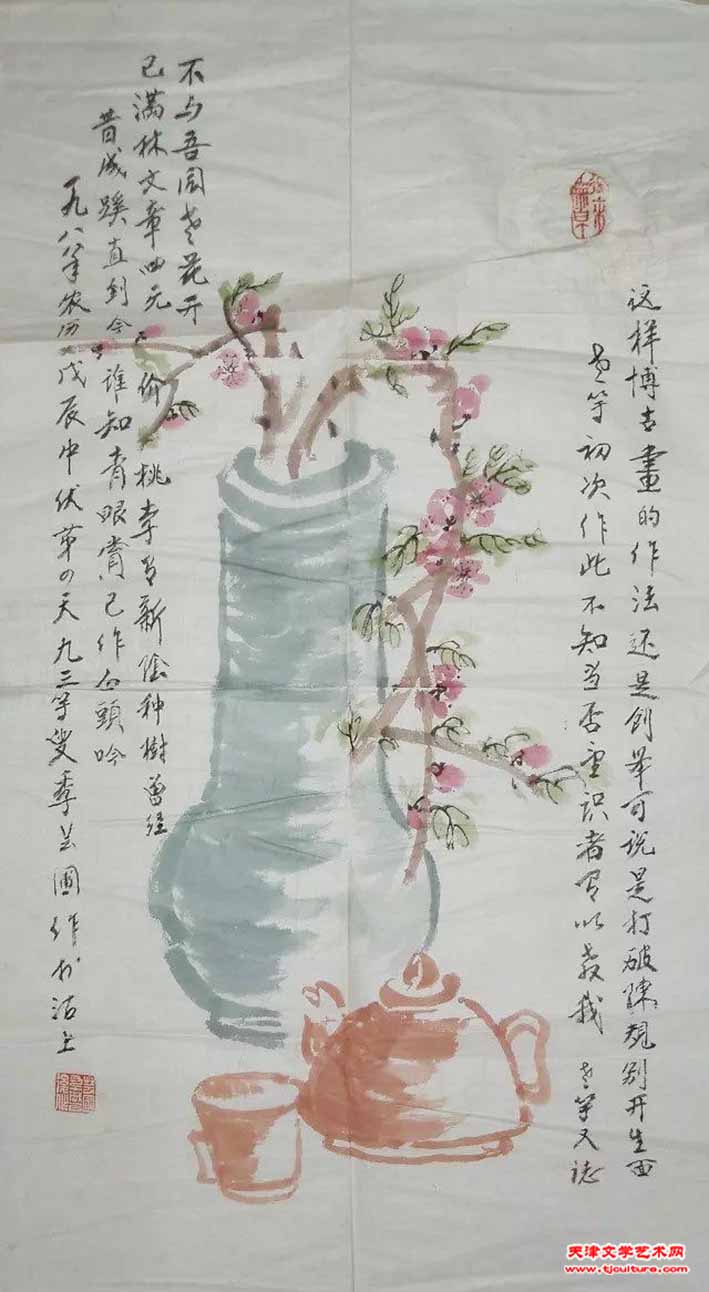 这样博古畫的作法还是创举可说是打破陈规别开生面
老竽初次作此不知当否望识者有以教我 老竽又誌
不与吾园老花开
已满林文章四元价桃李有新陰种樹曾经
昔成蹊直到今谁知青眼赏已作白頭吟
一九八八年农历戊辰中伏第の天九三竽叟季芝圃作於沽上
天津文学艺术网
www.tjculture.com